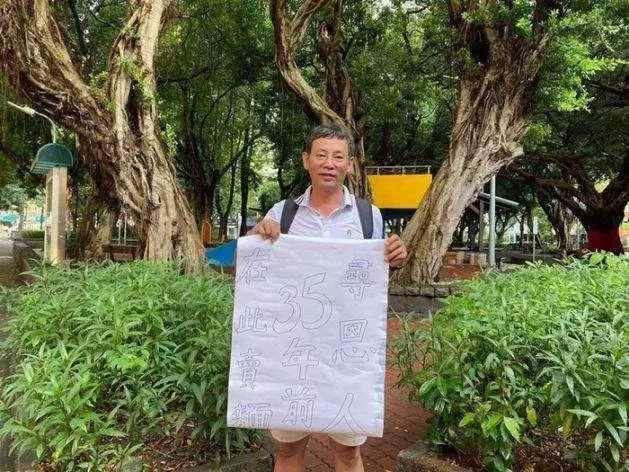 尋恩人
35年前
在此賣